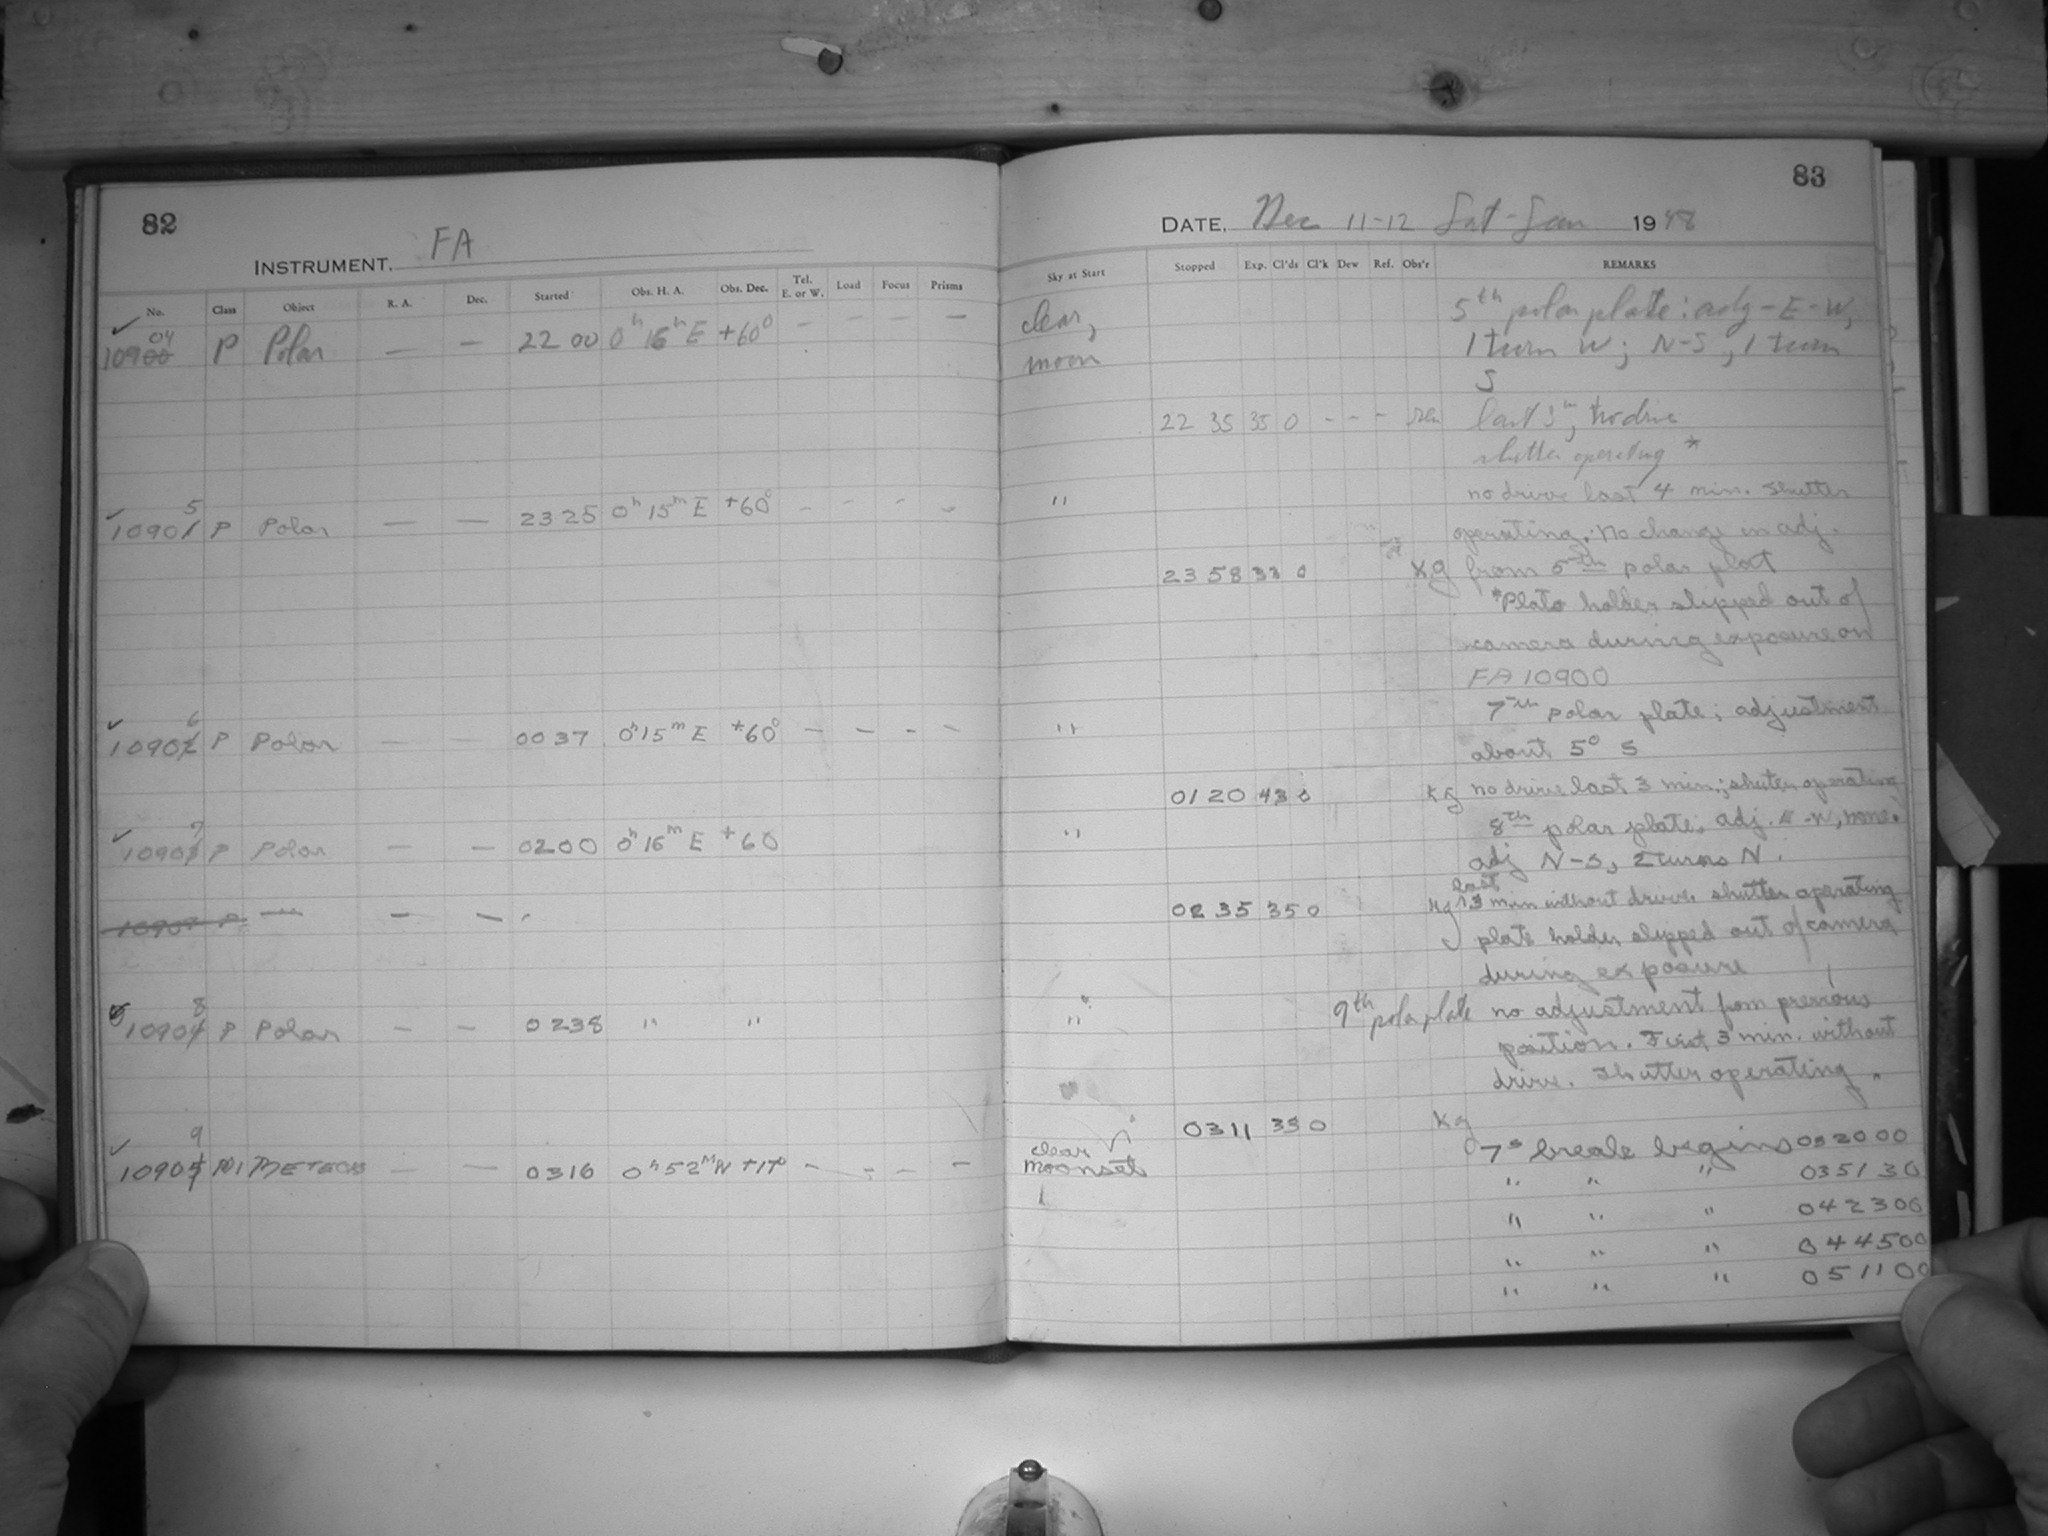 82
INSTRUMENT. FA
No. Class Object R. A. Dec. Started Obs. H. A. Obs. Dec. Tel. E. or W. Load Focus Prisms
04
✓ 10900 P Polar — — 22 00 0h 16m E +60° — — — —
5
✓ 10901 P Polar — — 23 25 0h 15m E +60° - - - -
6
✓ 10902 P Polar — — 00 37 0h 15m E +60° — — — —
7
✓ 10903 P Polar — — 02 00 0h 16m E +60
10904 P — — —
8
10904 P Polar — — 02 38 " "
9
✓ 10905 METEORS — — 03 16 0h 52m W - - - —
83
DATE. Dec 11-12 Sat-Sun 1948
Sky at Start Stopped Exp. Cl'ds Cl'k Dew Ref. Obs'r REMARKS
clear, 5th polar plate: adj - E-W,
moon 1 turn W; N-S, 1 turn
S
22 35 35 0 - - - last 3m, no drive
shutter operating *
" no drive last 4 min. shutter
operating. No change in adj.
23 58 33 0 Kg from 5th polar plat
*Plate holder slipped out of
camera during exposure on
FA 10900
" 7th polar plate; adjustment
about 5° S
01 20 43 0 Kg no drive last 3 min.; shuter operating
" 8th polar plate. adj. E-W, none.
adj N-S, 2 turns N.
last
02 35 35 0 Kg 3 min without drive. shutter operating
plate holder slipped out of camera
during exposure
" 9th polar plate no adjustment from previous
position. First 3 min. without
drive. Shutter operating.
03 11 33 0 Kg
clear
moonset
7s breaks begins 03 20 00
" " " 03 51 30
" " " 04 23 00
" " " 04 45 00
" " " 05 11 00